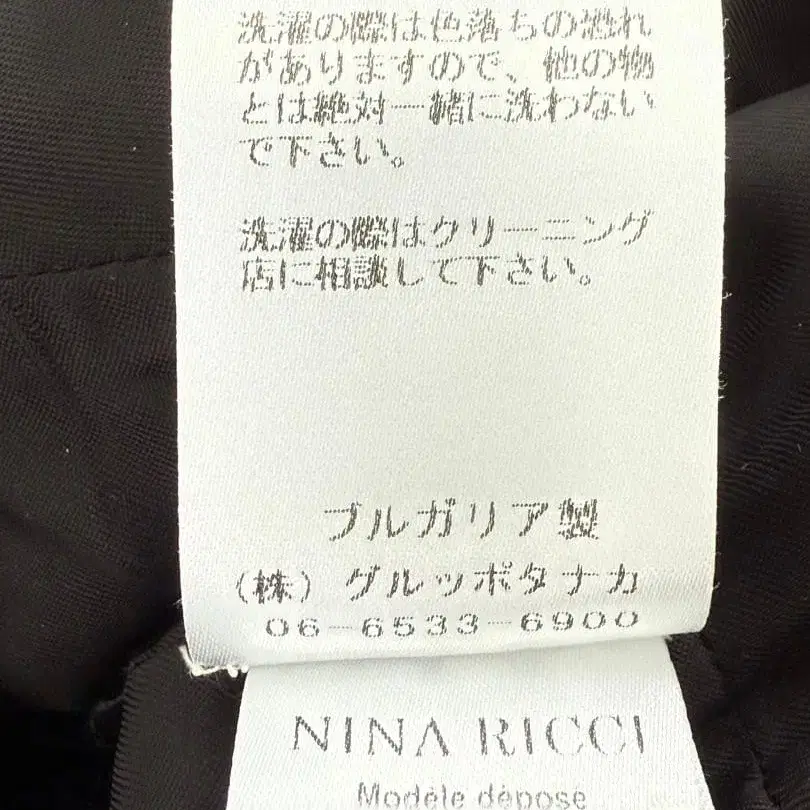 洗濯の際は色落ちの恐れ
がありますので、他の物
とは絶対一緒に洗わない
で下さい。
洗濯の際はクリーニング
店に相談して下さい。
ブルガリア製
(株) グルッポタナカ
06-6533-6900
NINA RICCI
Modèle déposé